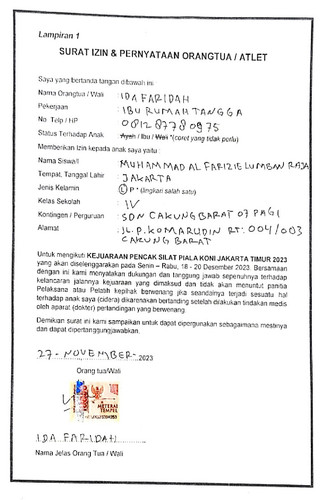 Lampiran 1
SURAT IZIN & PERNYATAAN ORANGTUA / ATLET
Saya yang bertanda tangan dibawah ini:
Nama Orangtua / Wali : IDA FARIDAH
Pekerjaan : IBU RUMAH TANGGA
No. Telp / HP : 081287780975
Status Terhadap Anak : Ayah / Ibu / Wali *(coret yang tidak perlu)
Memberikan Izin kepada anak saya yaitu :
Nama Siswa/i : MUHAMMAD AL FARIZIE LUMBAN RAJA
Tempat, Tanggal Lahir : JAKARTA
Jenis Kelamin : L/P* (lingkari salah satu)
Kelas Sekolah : IV
Kontingen / Perguruan : SDN CAKUNG BARAT 07 PAGI
Alamat : JL. P. KOMARUDIN RT. 004/003
CAKUNG BARAT
Untuk mengikuti KEJUARAAN PENCAK SILAT PIALA KONI JAKARTA TIMUR 2023
yang akan diselenggarakan pada Senin – Rabu, 18 - 20 Desember 2023. Bersamaan
dengan ini kami menyatakan dukungan dan tanggung jawab sepenuhnya terhadap
kelancaran jalannya kejuaraan yang dimaksud dan tidak akan menuntut panitia
Pelaksana atau Pelatih kepihak berwenang jika seandainya terjadi sesuatu hal
terhadap anak saya (cidera) dikarenakan bertanding setelah dilakukan tindakan medis
oleh aparat (dokter) pertandingan yang berwenang.
Demikian surat ini kami sampaikan untuk dapat dipergunakan sebagaimana mestinya
dan dapat dipertanggungjawabkan.
27 - NOVEMBER - 2023
Orang tua/Wali
METERAI
TEMPEL
IDA FARIDAH
Nama Jelas Orang Tua / Wali